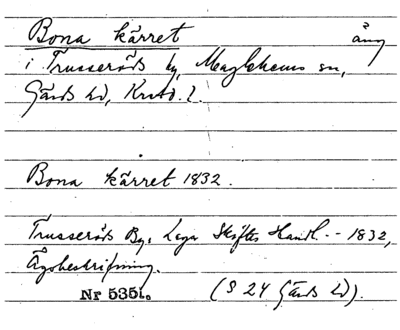 Bona kärret äng
i Trusseröds by, Maglehems sn,
Gärds hd, Krstd. l.
Bona kärret 1832.
Trusseröds By: Laga Skiftes Handl. - 1832,
Ägobeskrifning.
Nr 5351. (S 24 Gärds hd).